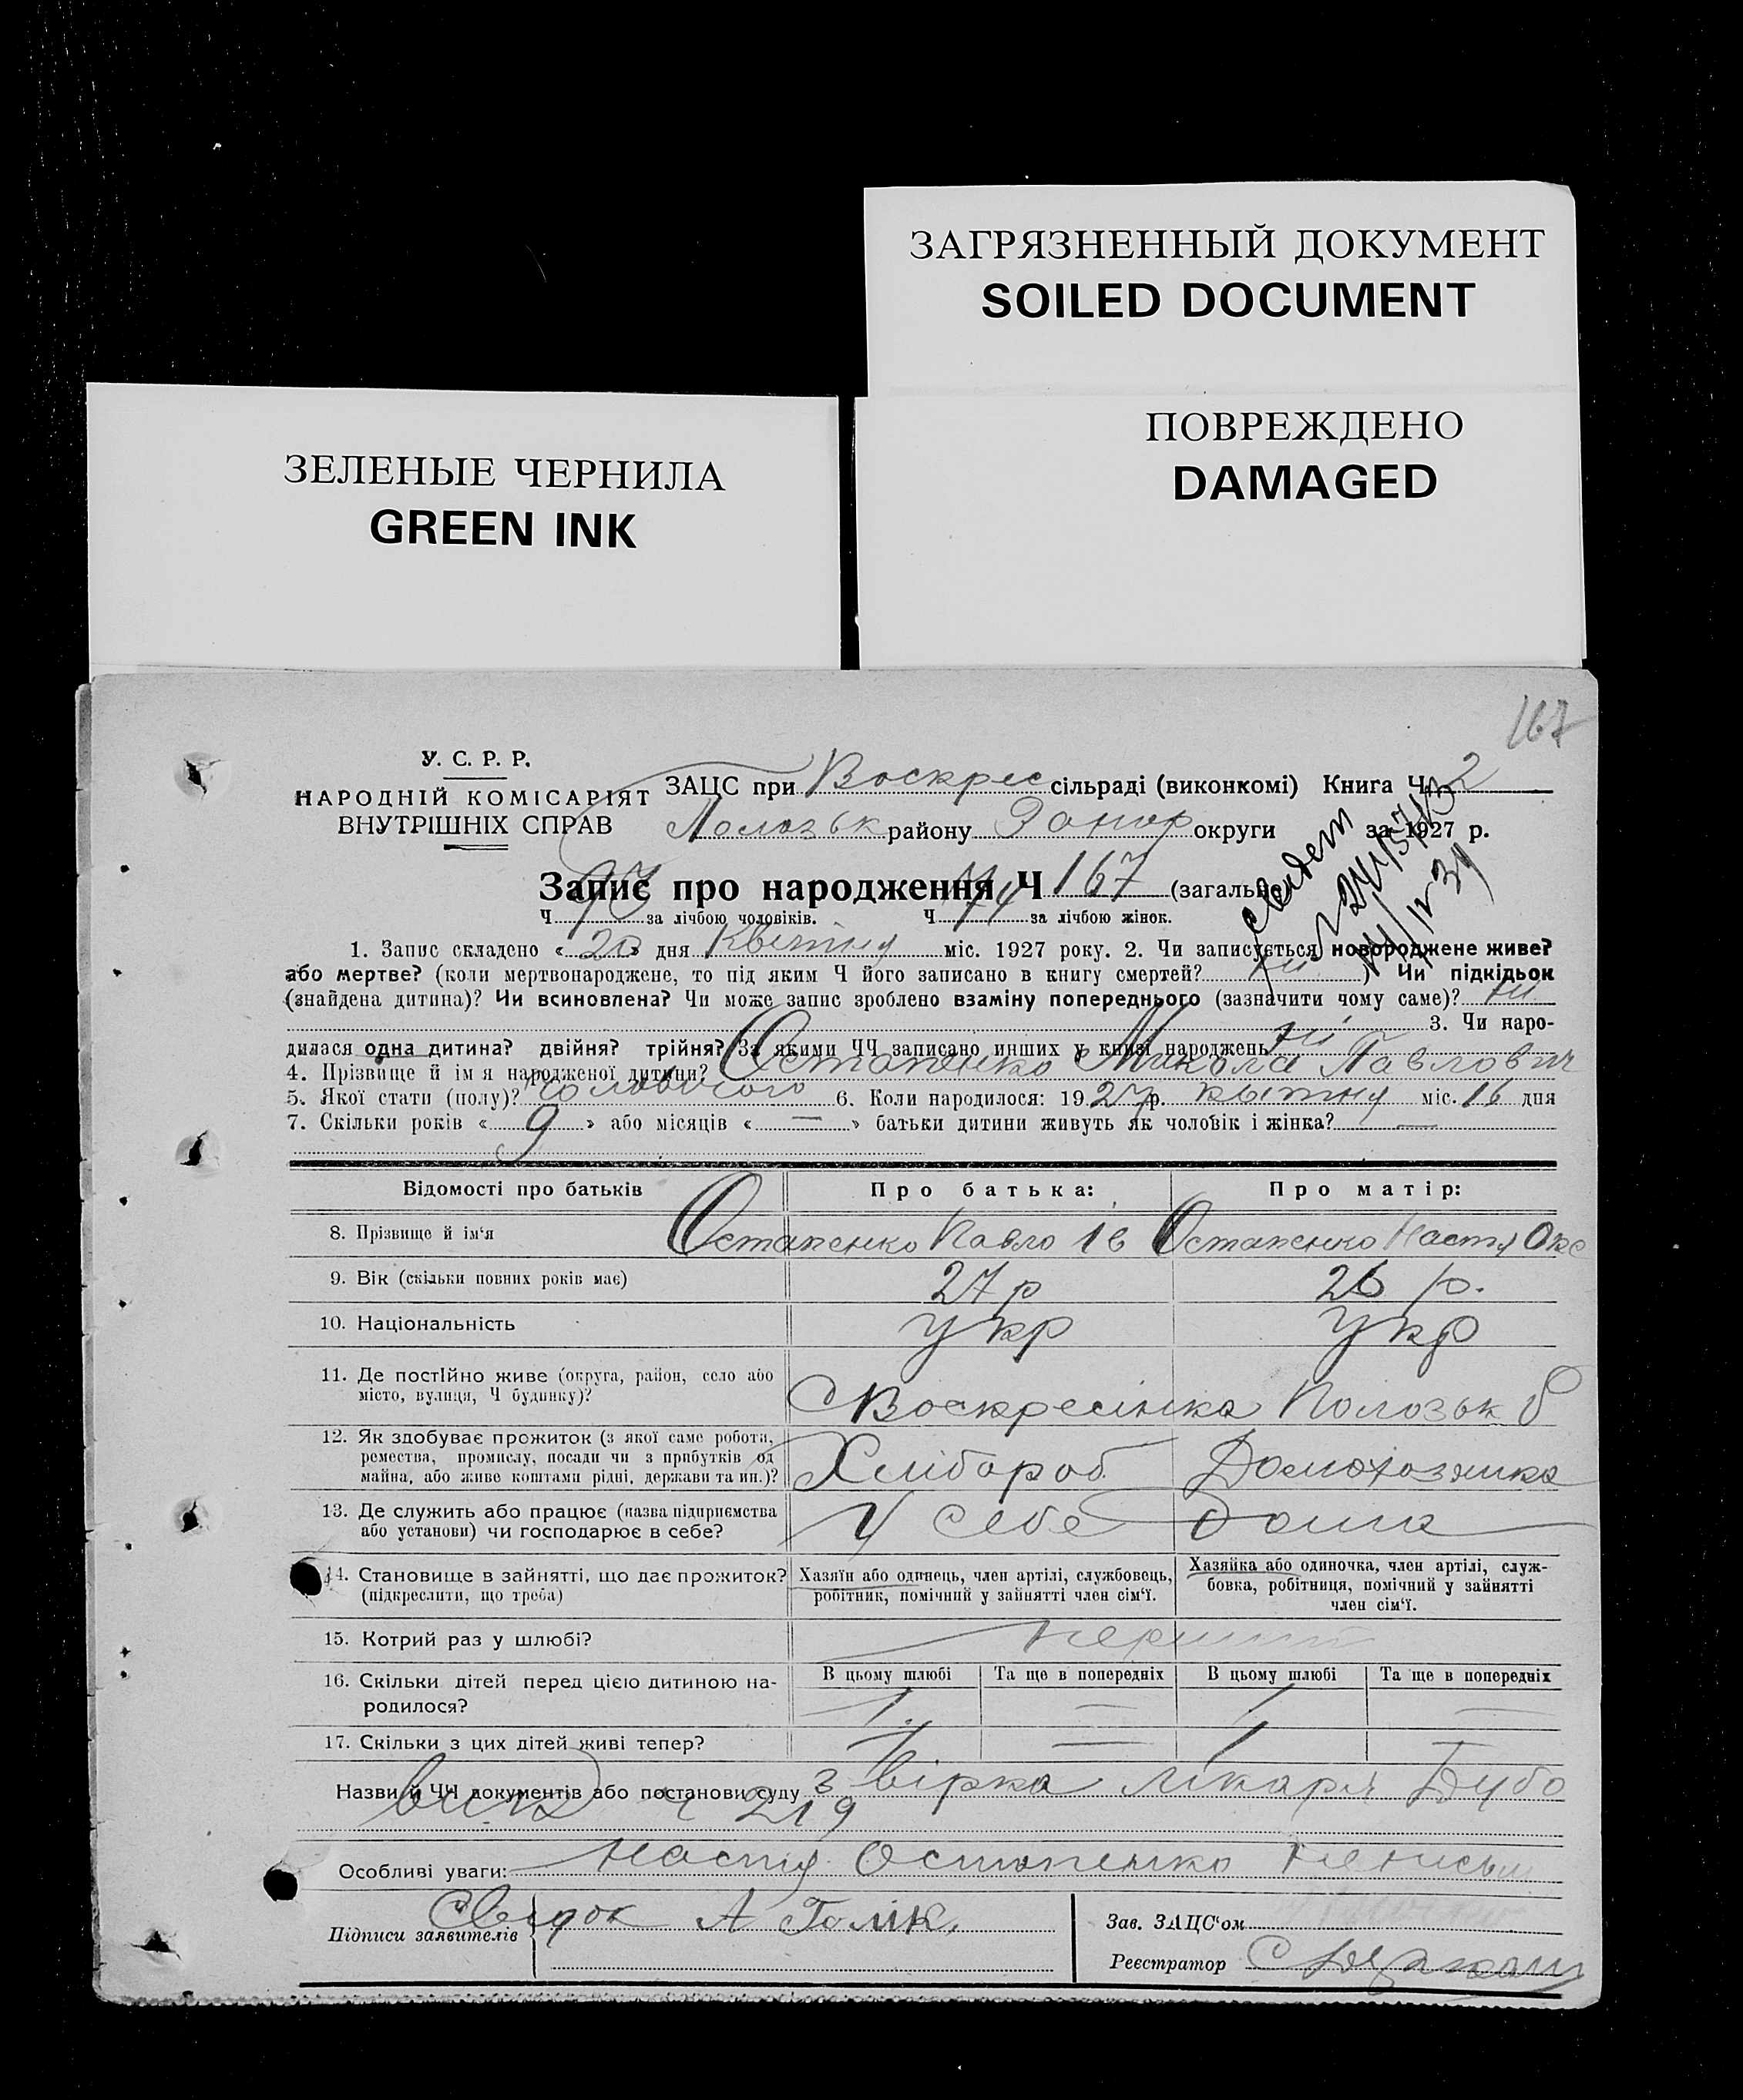 ЗАГРЯЗНЕННЫЙ ДОКУМЕНТ
SOILED DOCUMENT
ПОВРЕЖДЕНО
DAMAGED
ЗЕЛЕНЫЕ ЧЕРНИЛА
GREEN INK
167
У. С. Р. Р.
НАРОДНІЙ КОМІСАРІЯТ
ВНУТРІШНІХ СПРАВ
ЗАЦС при Воскрес сільраді (виконкомі) Книга Ч. 2
Полозьк району Запор округи за 1927 р.
Запис про народження Ч 167 (загальне)
Ч 93 за лічбою чоловіків. Ч 74 за лічбою жінок.
1. Запис складено « 20 » дня Квітня міс. 1927 року. 2. Чи записується новороджене живе?
або мертве? (коли мертвонароджене, то під яким Ч його записано в книгу смертей? ні ) Чи підкідьок
(знайдена дитина)? Чи всиновлена? Чи може запис зроблено взаміну попереднього (зазначити чому саме)? ні
3. Чи наро-
дилася одна дитина? двійня? трійня? За якими ЧЧ записано инших у книзі народжень ні
4. Прізвище й ім я народженої дитини? Остапенко Микола Павлович
5. Якої стати (полу)? 6. Коли народилося: 1927 р. міс. 16 дня
7. Скільки років « 9 » або місяців « — » батьки дитини живуть як чоловік і жінка? —
Відомості про батьків Про батька: Про матір:
8. Прізвище й ім‘я Остапенко Павло Ів Остапенко Настя
9. Вік (скільки повних років має) 27 р 26 р.
10. Національність укр укр
11. Де постійно живе (округа, район, село або
місто, вулиця, Ч будинку)? Воскресінка Полозьк
12. Як здобуває прожиток (з якої саме роботи,
ремества, промислу, посади чи з прибутків од
майна, або живе коштами рідні, держави та ин.)? Хлібороб Домохозяика
13. Де служить або працює (назва підприємства
або установи) чи господарює в себе? У себе дома
14. Становище в зайнятті, що дає прожиток?
(підкреслити, що треба)
Хазяїн або одинець, член артілі, службовець,
робітник, помічний у зайнятті член сім‘ї.
Хазяйка або одиночка, член артілі, служ-
бовка, робітниця, помічний у зайнятті
член сім‘ї.
15. Котрий раз у шлюбі? перший
16. Скільки дітей перед цією дитиною на-
родилося?
В цьому шлюбі Та ще в попередніх В цьому шлюбі Та ще в попередніх
1. — 1 —
17. Скільки з цих дітей живі тепер? 1 — 1 —
Назви й ЧЧ документів або постанови суду лікаря
ч 219
Особливі уваги: Настя Остапенко
Підписи заявителів А Голік.
Зав. ЗАЦС‘ом
Реєстратор